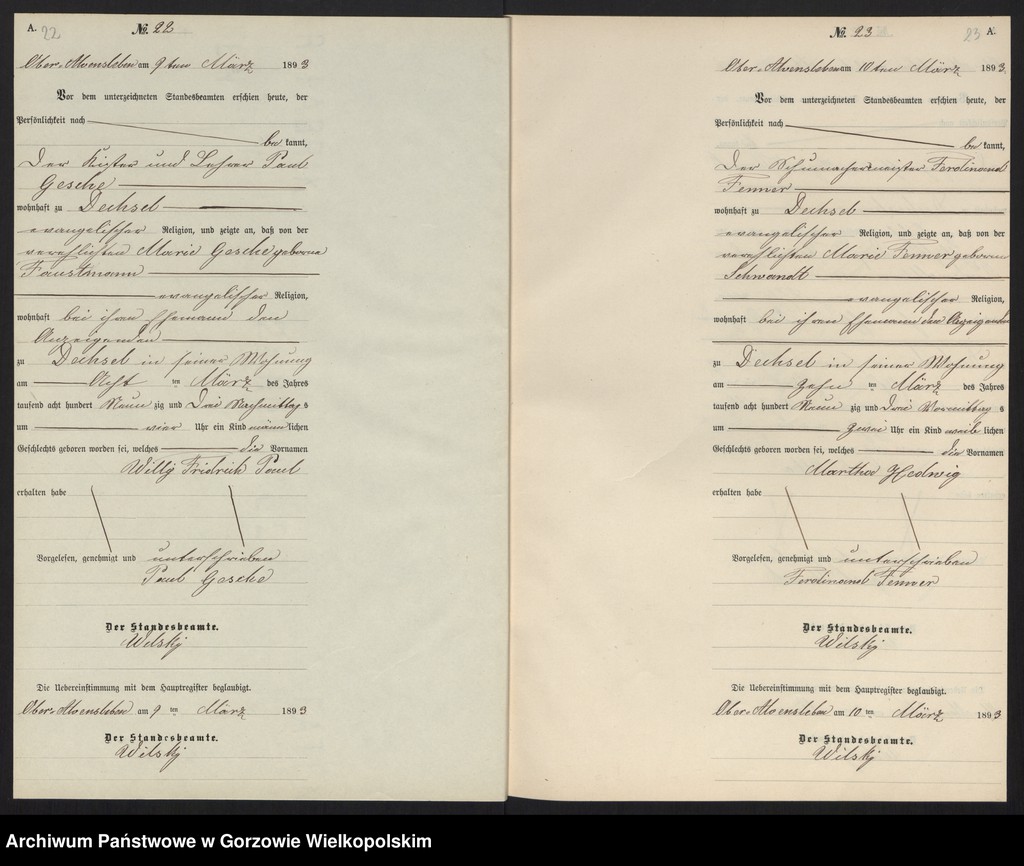 A. 22
№ 22
Ober-Alvensleben am 9ten März 1893
Vor dem unterzeichneten Standesbeamten erschien heute, der
Persönlichkeit nach
bekannt,
Der Küster und Lehrer Paul
Gesche
wohnhaft zu Dechsel
evangelischer Religion, und zeigte an, daß von der
verehlichten Marie Gesche geborne
Faustmann
evangelischer Religion,
wohnhaft bei ihren Ehemann den
Anzeigenden
zu Dechsel in seiner Wohnung
am Acht ten März des Jahres
tausend acht hundert Neun zig und Drei Nachmittags
um vier Uhr ein Kind männlichen
Geschlechts geboren worden sei, welches die Vornamen
Willy Fridrich Paul
erhalten habe
Vorgelesen, genehmigt und unterschrieben
Paul Gesche
Der Standesbeamte.
Wilsky
Die Uebereinstimmung mit dem Hauptregister beglaubigt.
Ober-Alvensleben am 9 ten März 1893
Der Standesbeamte.
Wilsky
№ 23
23 A.
Ober-Alvensleben am 10ten März 1893.
Vor dem unterzeichneten Standesbeamten erschien heute, der
Persönlichkeit nach
bekannt,
Der Schumachermeister Ferdinand
Fenner
wohnhaft zu Dechsel
evangelischer Religion, und zeigte an, daß von der
verehlichten Marie Fenner geborne
Schwandt
evangelischer Religion,
wohnhaft bei ihren Ehemann den Anzeigenden
zu Dechsel in seiner Wohnung
am Zehn ten März des Jahres
tausend acht hundert Neun zig und Drei Vormittags
um Zwei Uhr ein Kind weiblichen
Geschlechts geboren worden sei, welches die Vornamen
Martha Hedwig
erhalten habe
Vorgelesen, genehmigt und unterschrieben
Ferdinand Fenner
Der Standesbeamte.
Wilsky
Die Uebereinstimmung mit dem Hauptregister beglaubigt.
Ober-Alvensleben am 10 ten März 1893
Der Standesbeamte.
Wilsky
Archiwum Państwowe w Gorzowie Wielkopolskim